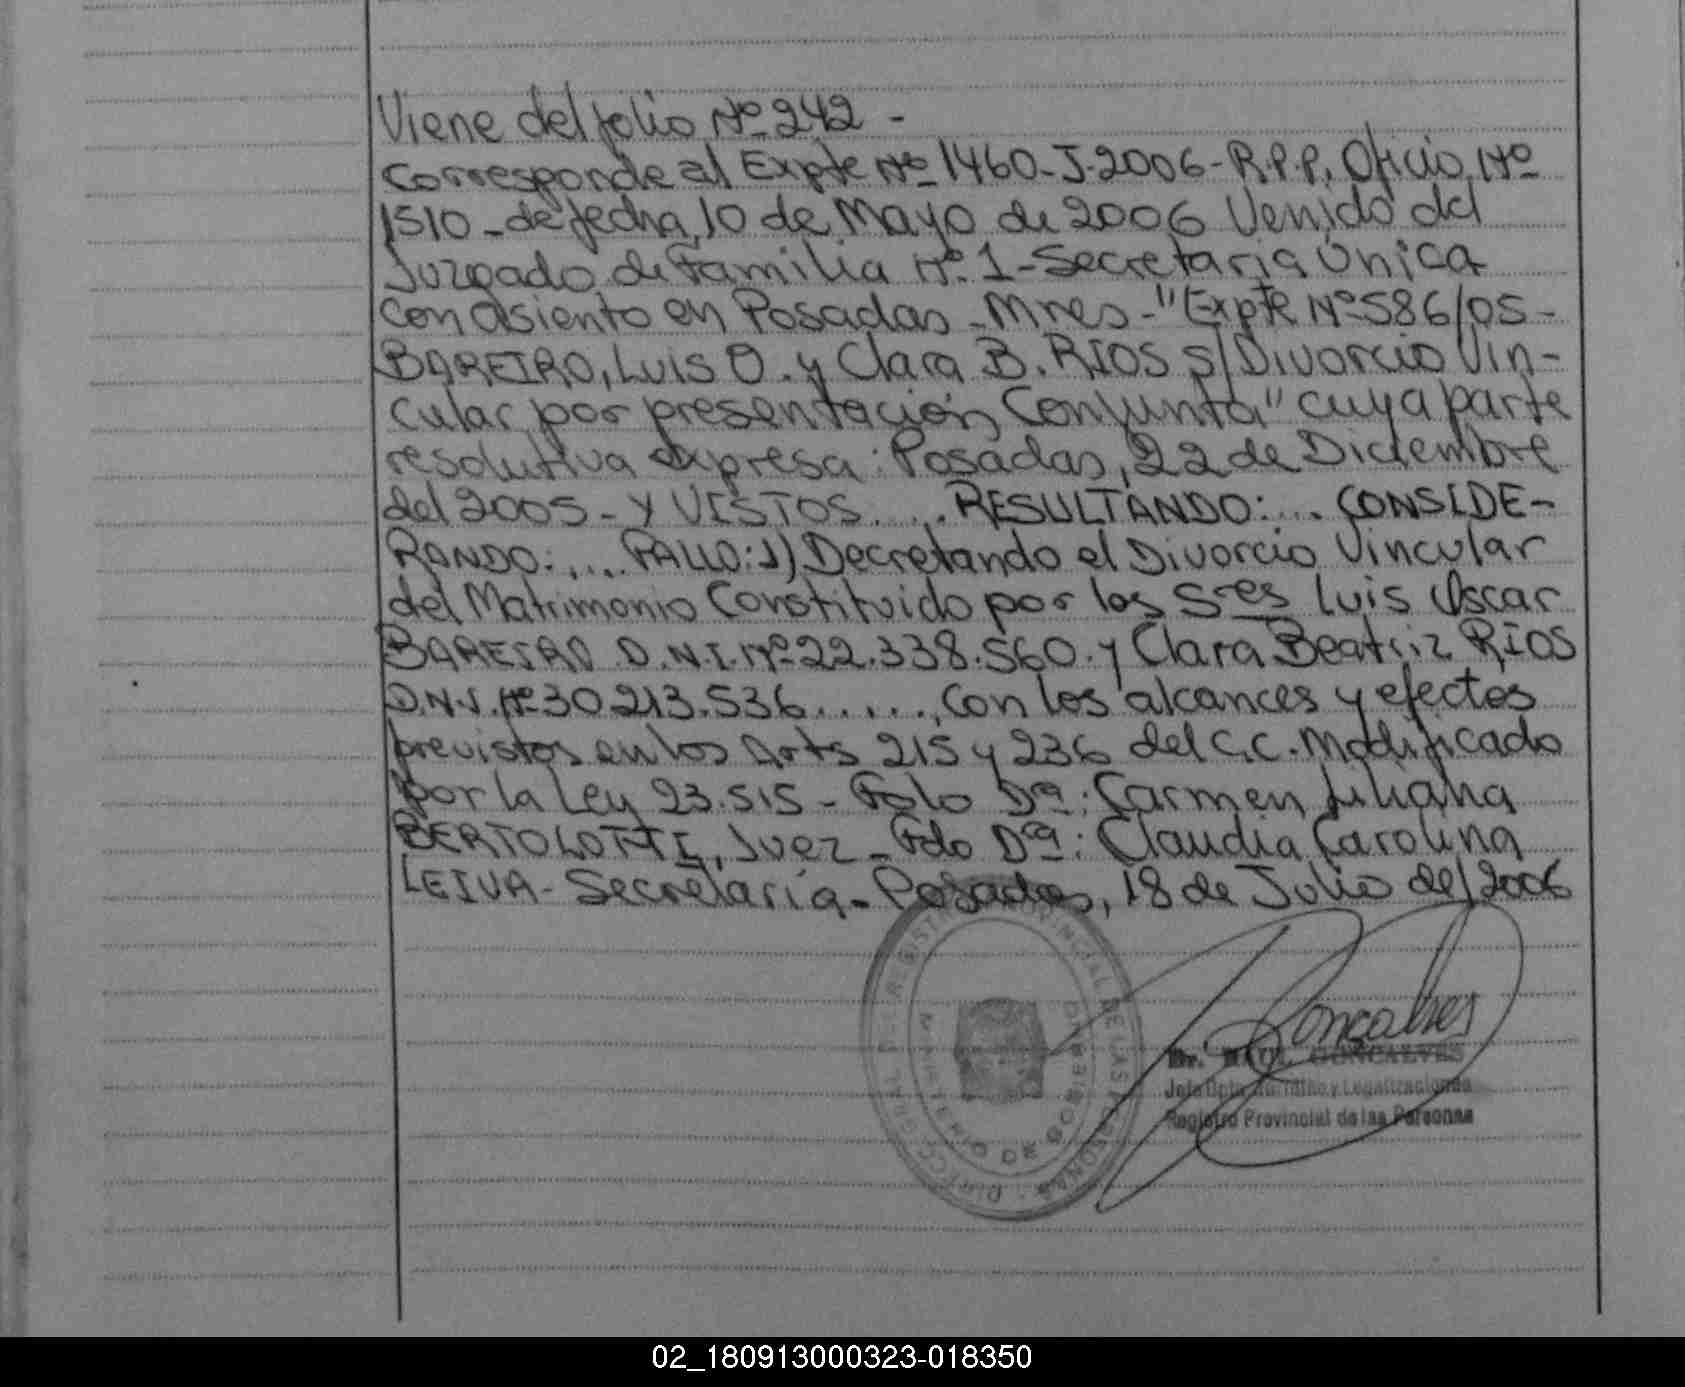 Viene del folio Nº 242 -
Corresponde al Expte Nº 1460-J-2006- R.P.P, Oficio, Nº
1510 - de fecha, 10 de Mayo de 2006 Venido del
Juzgado de Familia Nº. 1 - Secretaria Única
con asiento en Posadas - Mnes - "Expte Nº 586/05 -
BAREIRO, Luis O. y Clara B. RIOS s/Divorcio Vin-
cular por presentación Conjunta" cuya parte
resolutiva expresa: Posadas, 22 de Diciembre
del 2005 - Y VISTOS.... RESULTANDO:... CONSIDE-
RANDO:.... FALLO: 1) Decretando el Divorcio Vincular
del Matrimonio Constituido por los Sres Luis Oscar
BAREIRO D.N.I. Nº 22.338.560. y Clara Beatriz RIOS
D.N.I. Nº 30.213.536......, con los alcances y efectos
previstos en los Arts 215 y 236 del C.C. Modificado
por la Ley 23.515 - Fdo Dra: Carmen Liliana
BERTOLOTTI, Juez - Fdo Dra: Claudia Carolina
LEIVA - Secretaria - Posadas, 18 de Julio del 2006
Goncalves
Dr. RAUL GONCALVES
Registro Provincial de las Personas
02_180913000323-018350